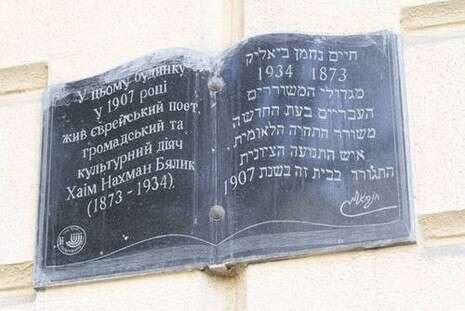 У цьому будинку
у 1907 році
жив єврейський поет,
громадський та
культурний діяч
Хаїм Нахман Бялик
(1873 - 1934)
חיים נחמן ביאליק
1934 1873
מגדולי המשוררים
העבריים בעת החדשה
משורר התחיה הלאומית
איש התנועה הציונית
התגורר בבית זה בשנת 1907